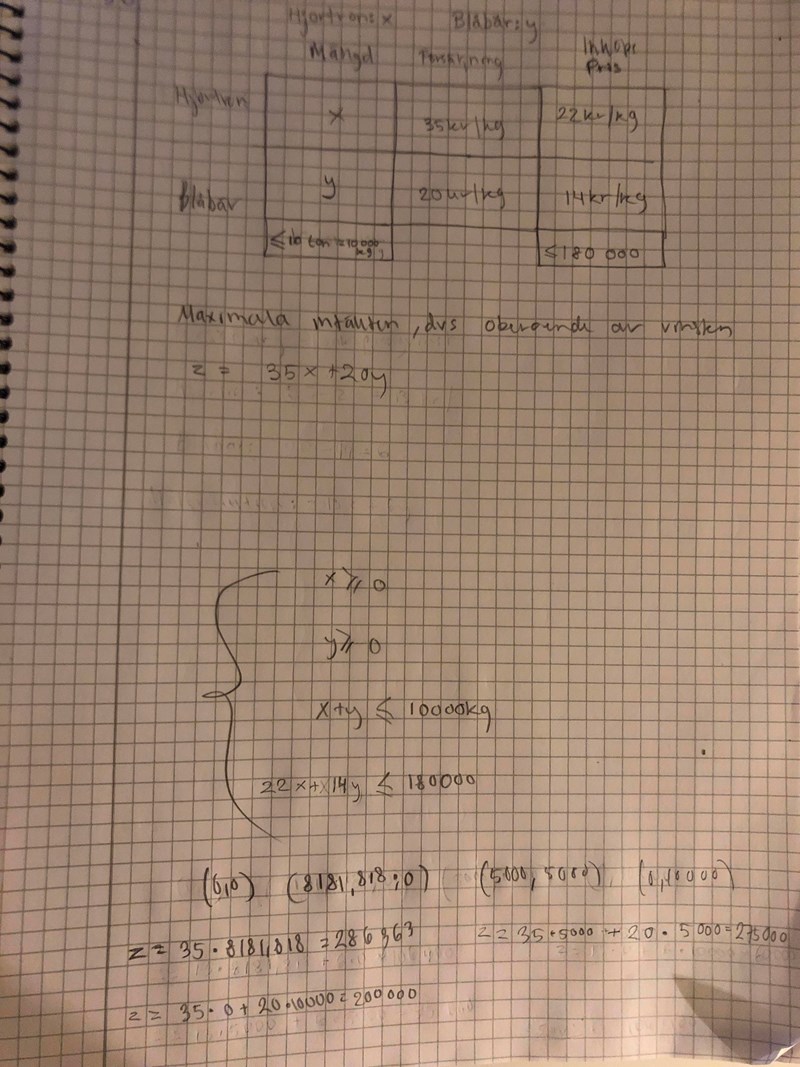 Hjortron: x Blåbär: y
Mängd Försäljning Inköps
Pris
Hjortron x 35kr/kg 22kr/kg
Blåbär y 20kr/kg 14kr/kg
≤ 10 ton = 10 000 kg ≤ 180 000
Maximala intäkten, dvs oberoende av vinsten
z = 35x + 20y
x ≥ 0
y ≥ 0
x+y ≤ 10000kg
22x + 14y ≤ 180000
(0,0) (8181,818; 0) (5000, 5000), (0, 10000)
z = 35 · 8181,818 = 286 363 z = 35 · 5000 + 20 · 5000 = 275000
z = 35 · 0 + 20 · 10000 = 200 000